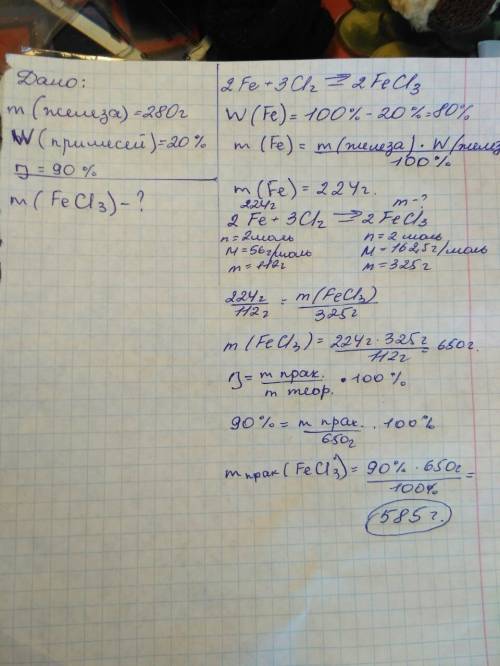 Дано:
m (железа) = 280г
W (примесей) = 20%
η = 90 %
m ( FeCl3) - ?
2 Fe + 3Cl2 ⇒ 2 FeCl3
W (Fe) = 100% - 20% = 80%
m (Fe) = m (железа) · W (желез
100%
m (Fe) = 224г.
224г m - ?
2 Fe + 3Cl2 ⇒ 2 FeCl3
n = 2 моль n = 2 моль
M = 56г/моль M = 162,5г/моль
m = 112г m = 325г
224г / 112г = m (FeCl3) / 325г
m (FeCl3) = 224г · 325г / 112г = 650г.
η = m прак. / m теор. · 100 %
90 % = m прак. / 650г · 100%
m прак (FeCl3) = 90% · 650г / 100% =
585г.